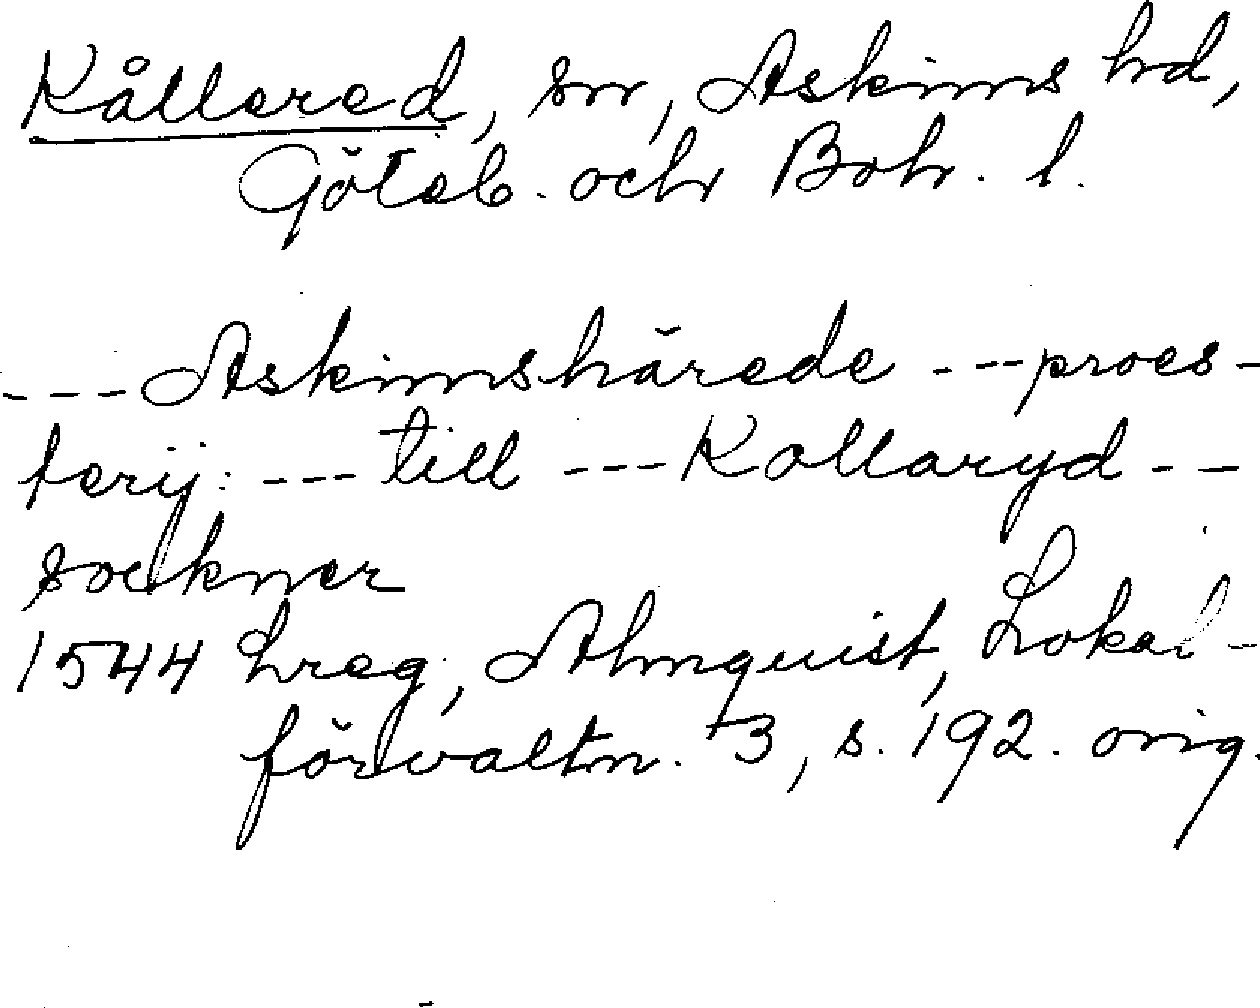 Kållered, sn, Askims hd,
Göteb. och Boh. l.
--- Askimshärede --- proes-
terij: --- till --- Kollaryd --
sockner
1544 hreg, Almquist, Lokal-
förvaltn. 3, s. 192. orig.